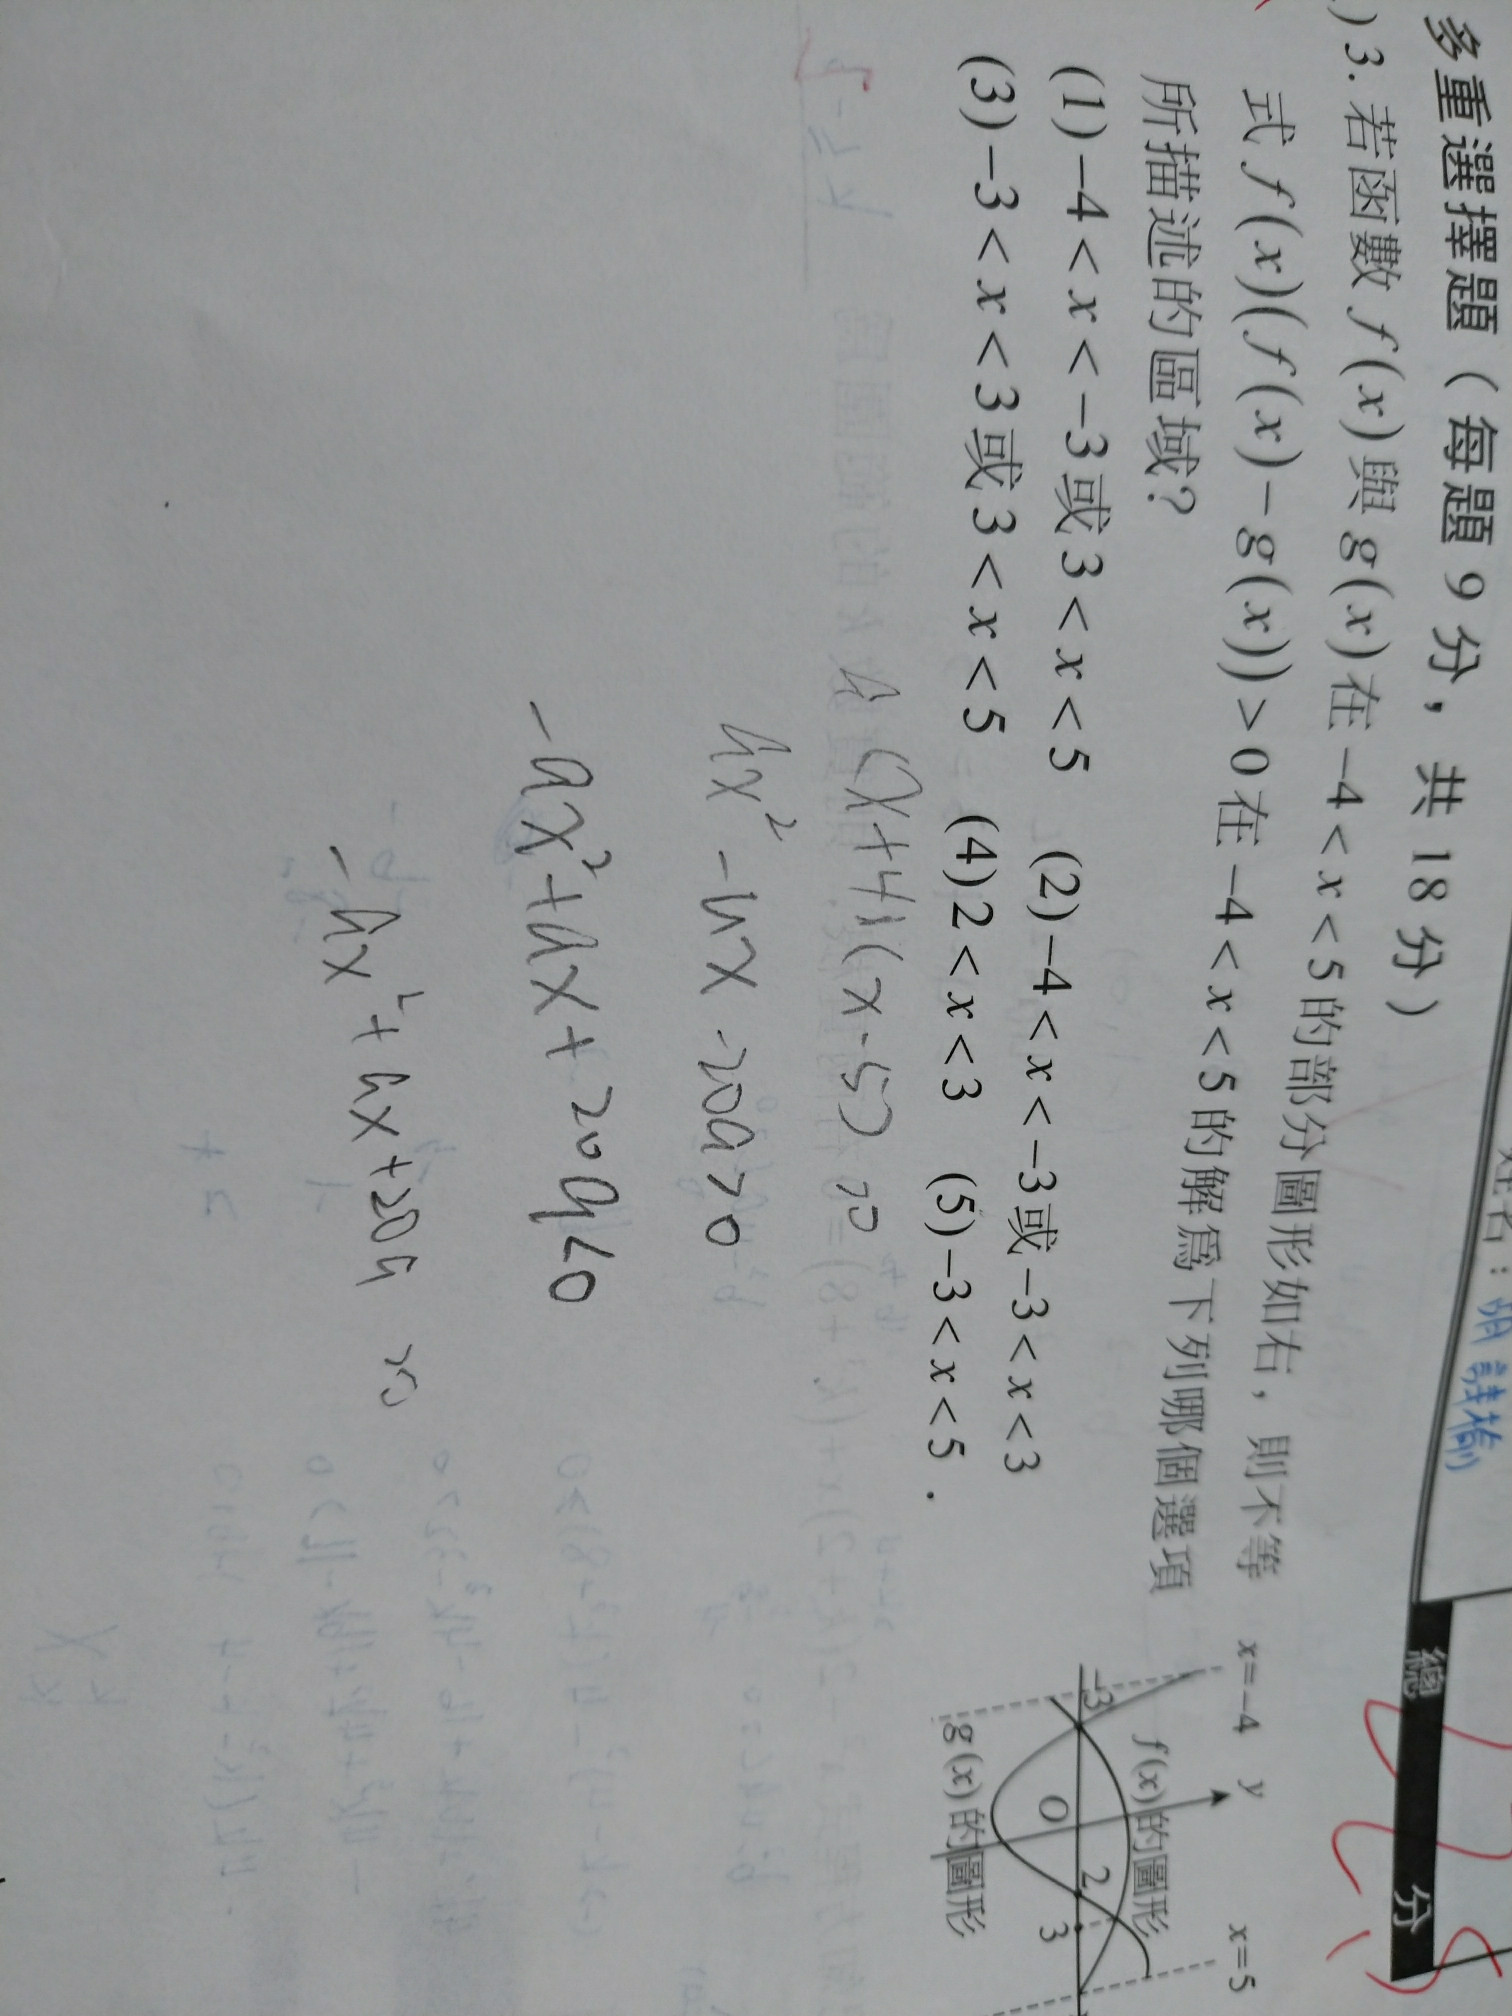 多重選擇題（每題 9 分，共 18 分）
) 3. 若函數 f(x) 與 g(x) 在 −4 < x < 5 的部分圖形如右，則不等
式 f(x)(f(x)−g(x))>0 在 −4 < x < 5 的解為下列哪個選項
所描述的區域？
(1) −4 < x < −3 或 3 < x < 5 (2) −4 < x < −3 或 −3 < x < 3
(3) −3 < x < 3 或 3 < x < 5 (4) 2 < x < 3 (5) −3 < x < 5 .
總 分
x=−4 y x=5
f(x)的圖形
−3 O 2 3
g(x)的圖形
a(x+4)(x-5)>0
ax² -ax -20a>0
-ax²+ax+20a<0
-ax²+ax+20a >0